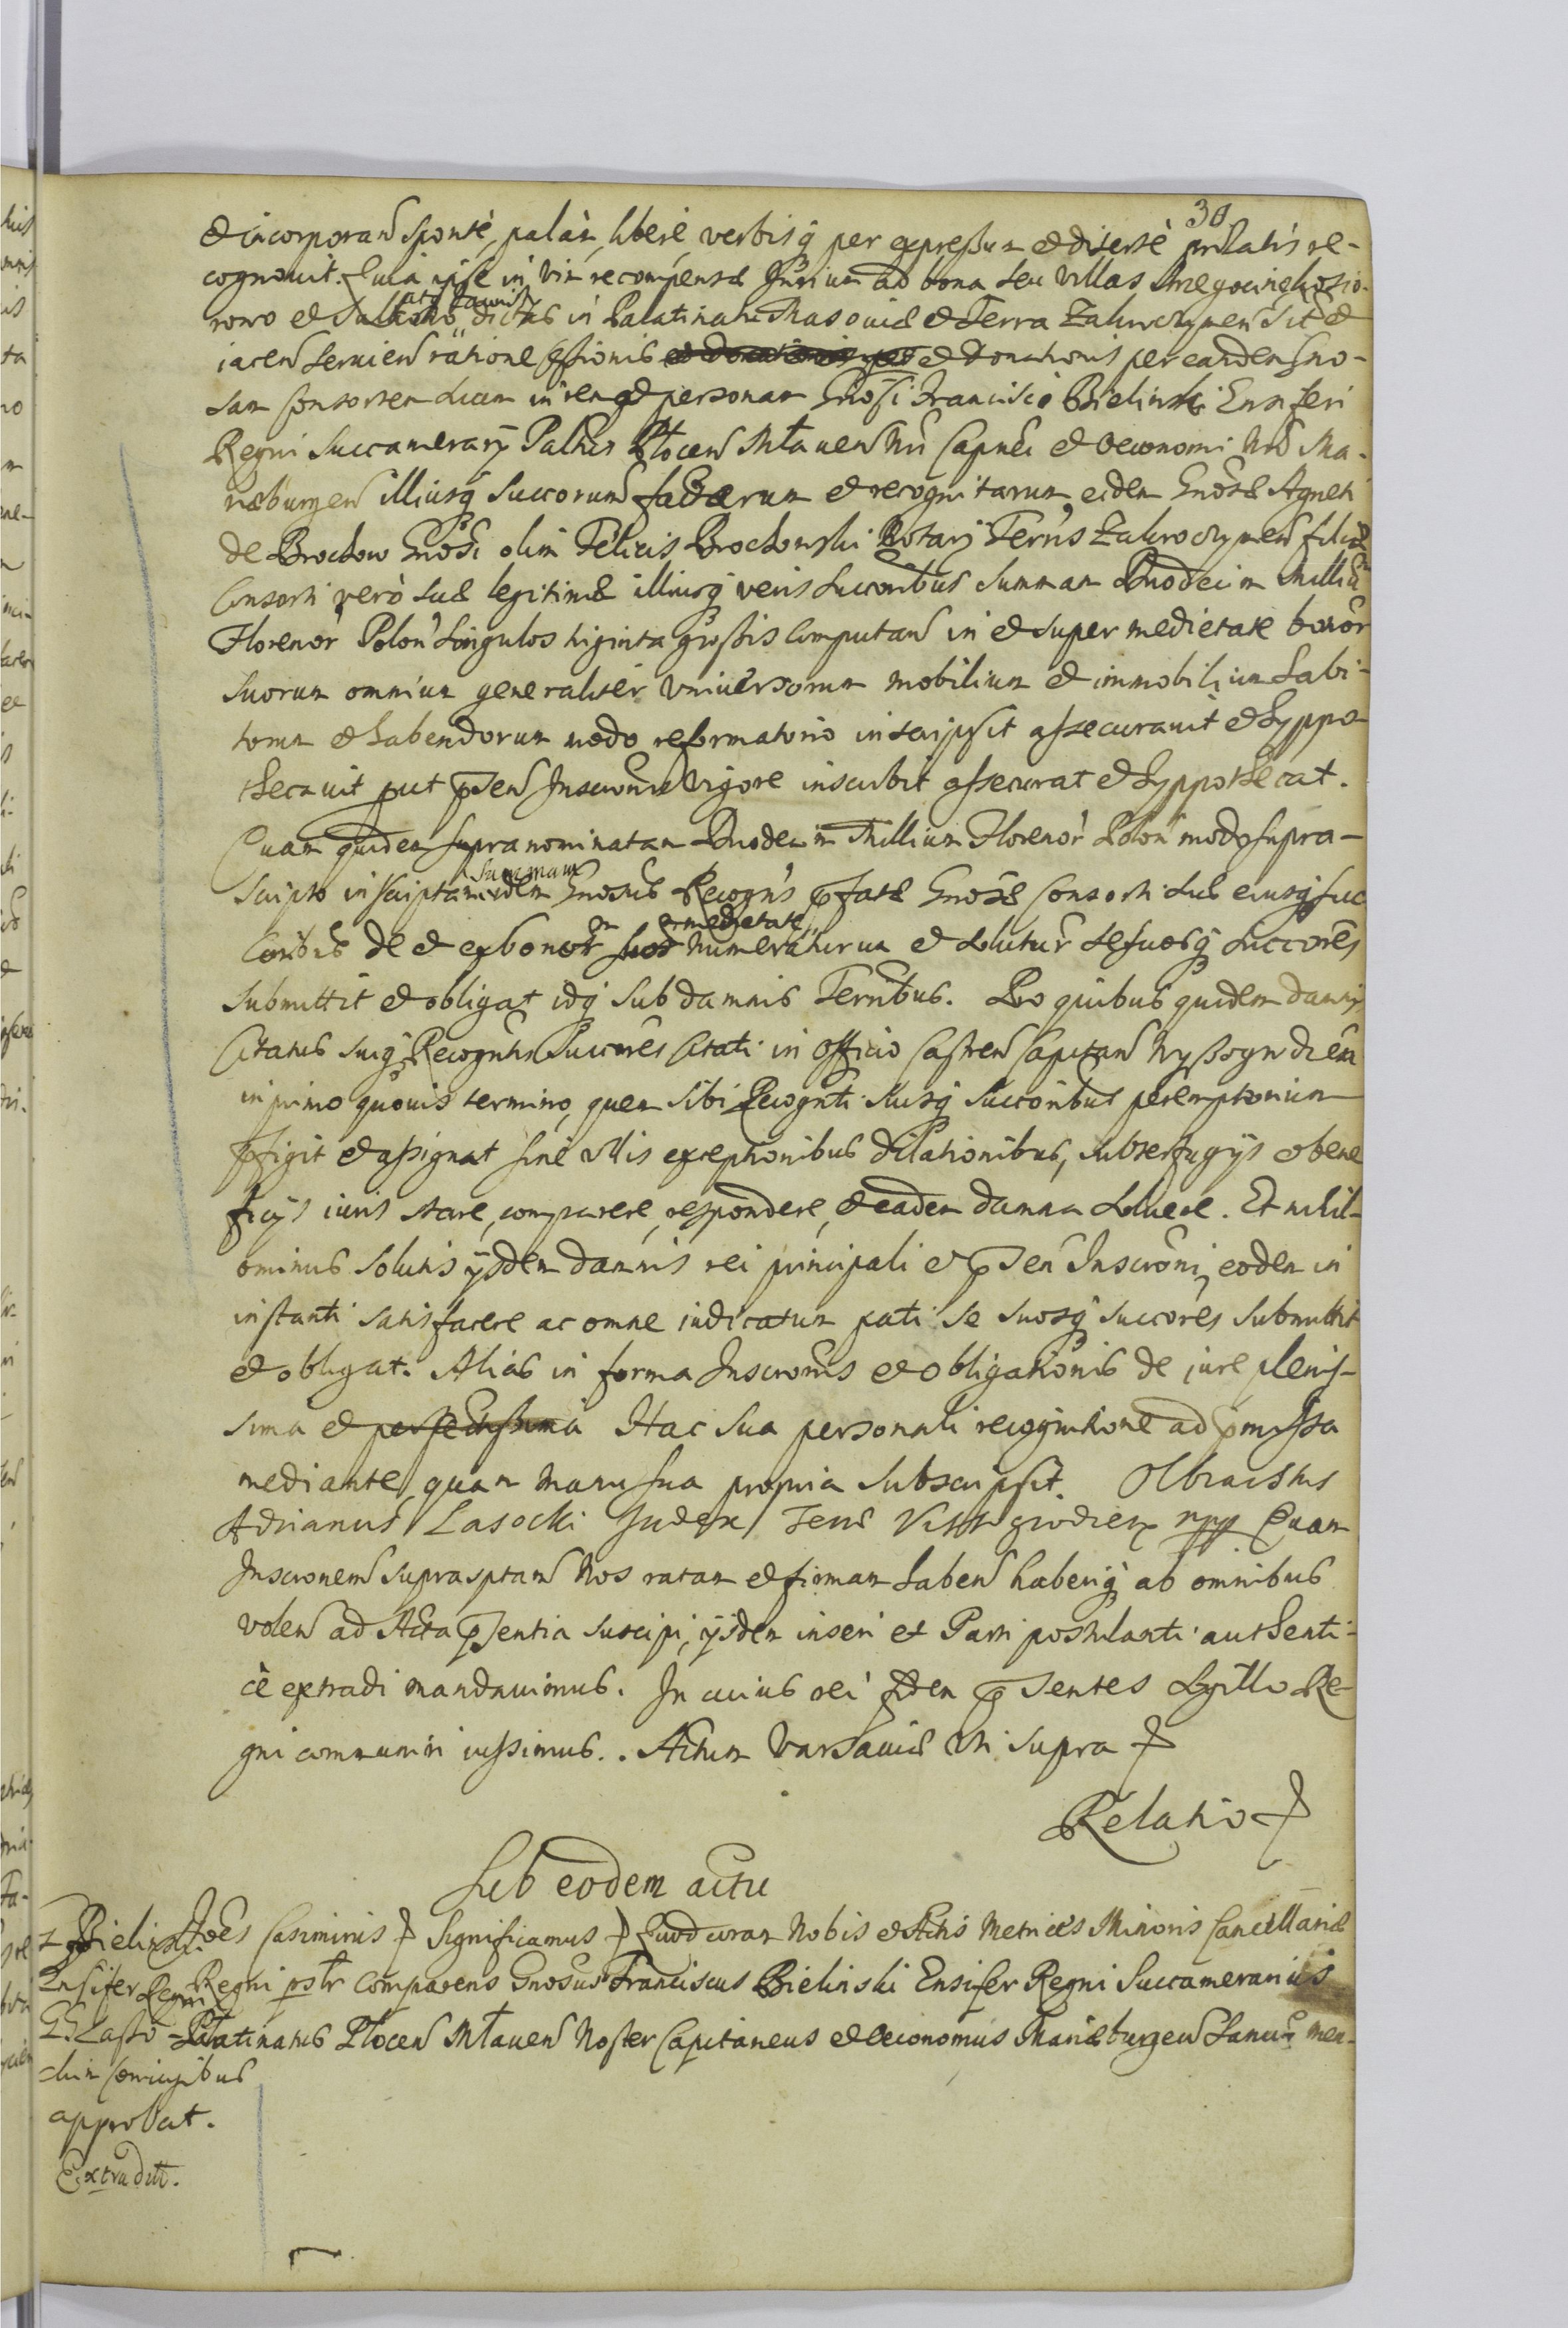 30
et incorporan sponte, palam, libere, verbisq per expressum et diserte prolatis re-
cognovit. Quia ipse in vim recompensae Jurium ad bona seu villas
rowo et atq dictas in Palatinatu Masoviae et Terra Zakroczymen sit et
iacen servien ratione cessionis et donationis per eandem Gno-
sam Consortem suam in rem et personam Gnosi Francisci Bielinski Ensiferi
Regni Succamerarij Palnus Plocen Mlaven Nri Capnei et Oeconomi Nri Ma-
riaeburgen illiusq Succorum factarum et recognitarum, eidem Gnosae Agneti
de Brochow Gnosi olim Felicis Brochowski Notarij Terris Zakroczymen filiae
Consorti verò suae legitimae illiusq veris Succoribus Summam Duodecim Milliu
Florenor Polon singulos triginta grossis computan in et super medietate bonor
suorum omnium generaliter universorum mobilium et immobilium habi-
torum et habendorum modo reformatorio inscripsit assecuravit et hyppo-
thecavit put pnsen Inscronis vigore inscribit assecurat et hyppothecat.
Quam quidem supranominatam Duodecim Millium Florenor Polon modo supra-
scripto inscriptam Summam idem Gnosus Recogns pfatae Gnosae Consorti suae eiusq suc
coribus de et ex bonor suor medietate numeraturum et soluturu se suosq succores
submittit et obligat idq sub damnis Terribus. Pro quibus quidem damnis
Citatus suiq Recogntis Succores Citati in Officio Castren Capitan Wyssogrodien
in primo quovis termino, quem sibi Recognti suisq succoribus peremptorium
pfigit et assignat sine ullis exceptionibus dilationibus, subterfugijs et bene
ficijs iuris stare, comparere, respondere, et eadem damna solvere. Et nihil-
ominus solutis ijsdem damnis rei principali et psen Inscroni eodem in
instanti satisfacere ac omne iudicatum pati se suosq succores submittit
et obligat. Alias in forma Inscronis et obligationis de jure plenis-
sima et perfectissima Hac sua personali recognitione ad pmissa
mediante, quam manu sua propria subscripsit. Olbrachtus
Adrianus Lasocki Judex Terrae Vissogrodien mpp Quam
Inscronem suprasptam Nos ratam et firmam haben haberiq ab omnibus
volen ad Acta psentia suscipi, ijsdem inseri et Parti postulanti authenti-
cè extradi mandavimus. In cuius rei fidem psentes Sigillo Re-
gni communiri iussimus. Actum Varsaviae Uti supra
Relatio
Sub eodem actu
Bielinski
Ensifer Regni
approbat.
Extradit.
Joes Casimirus Significamus Quod coram Nobis et Actis Metrices Minoris Cancellariae
Regni pslr comparens Gnosus Franciscus Bielinski Ensifer Regni Succamerarius
Palatinatus Plocen Mlaven Noster Capitaneus et Oeconomus Mariaeburgen sanus men-